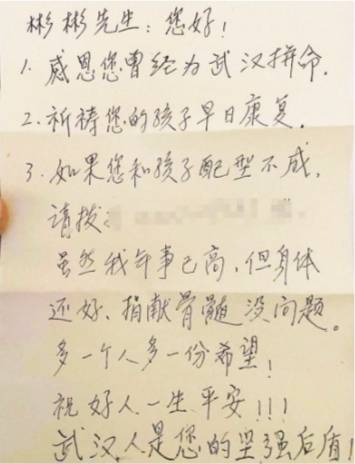 彬彬先生：您好！
1. 感恩您曾经为武汉拼命.
2. 祈祷您的孩子早日康复.
3. 如果您和孩子配型不成,
请拨:
虽然我年事已高,但身体
还好,捐献骨髓没问题。
多一个人多一份希望！
祝好人一生平安！！！
武汉人是您的坚强后盾！